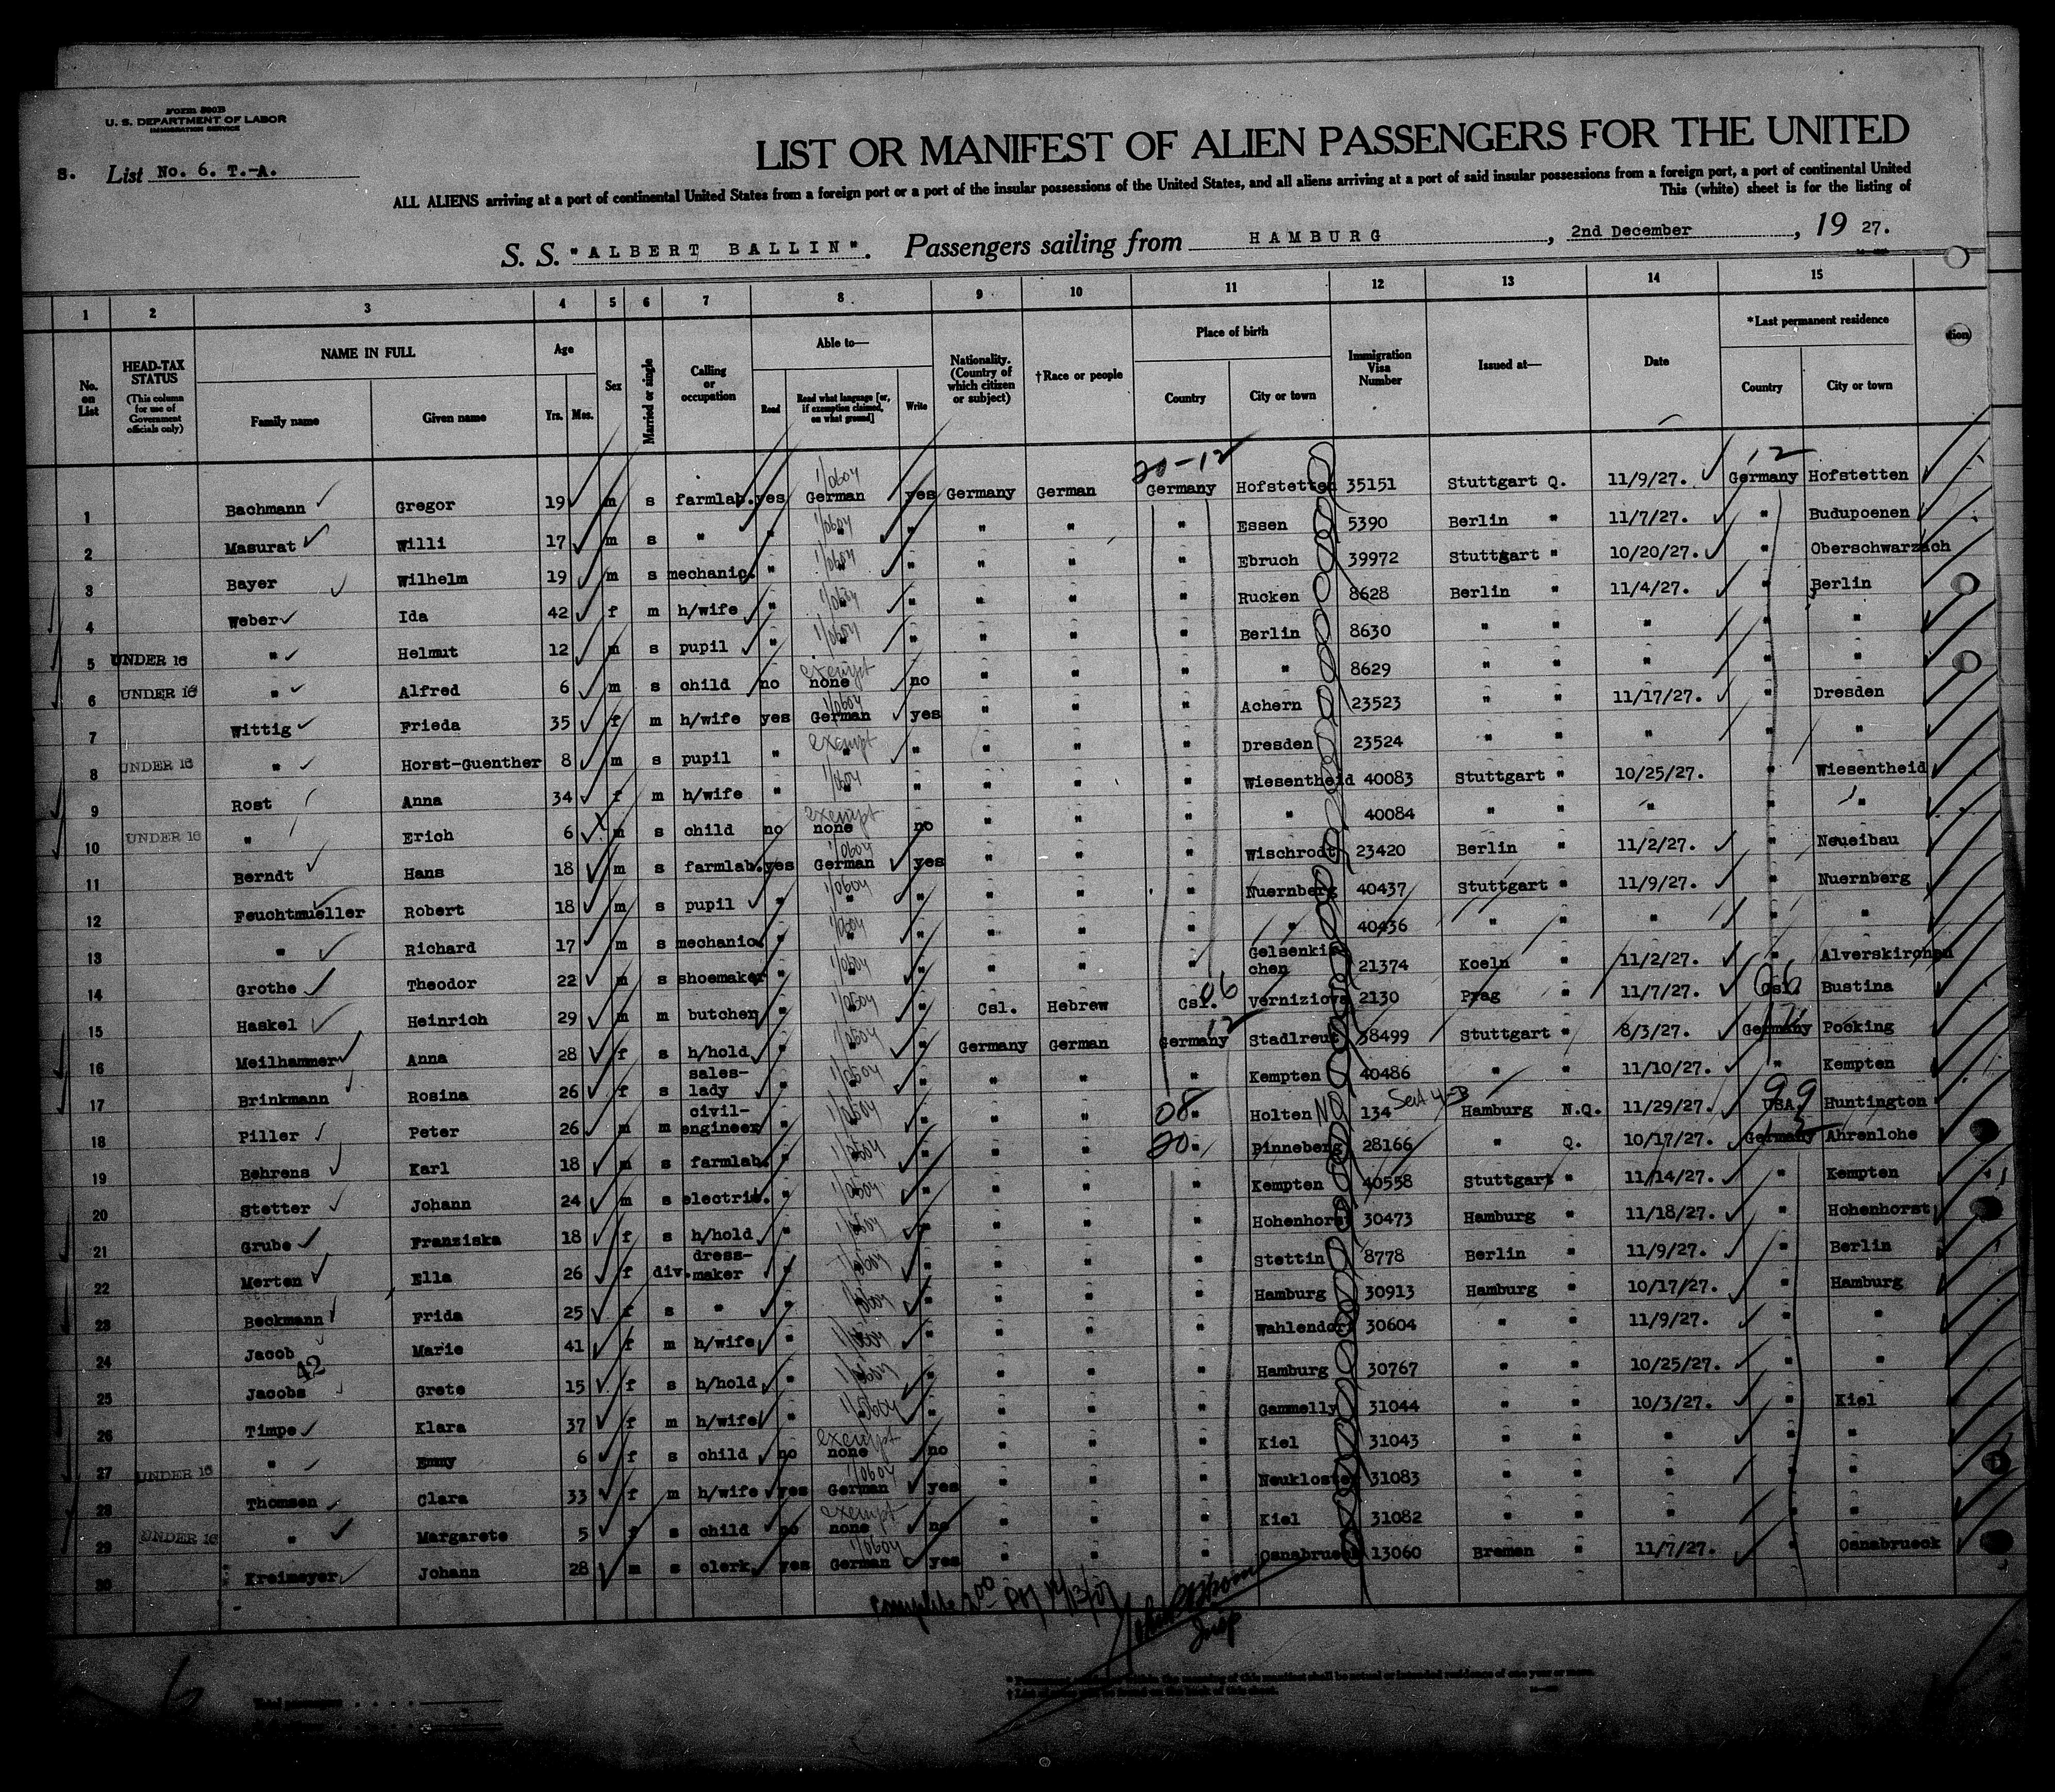 Form 500B
U. S. DEPARTMENT OF LABOR
IMMIGRATION SERVICE
LIST OR MANIFEST OF ALIEN PASSENGERS FOR THE UNITED
S. List No. 6. T.-A.
ALL ALIENS arriving at a port of continental United States from a foreign port or a port of the insular possessions of the United States, and all aliens arriving at a port of said insular possessions from a foreign port, a port of continental United
This (white) sheet is for the listing of
S. S. "ALBERT BALLIN". Passengers sailing from HAMBURG, 2nd December, 19 27.
1 2 3 4 5 6 7 8 9 10 11 12 13 14 15
No. on List
HEAD-TAX STATUS (This column for use of Government officials only)
NAME IN FULL
Family name Given name
Age
Yrs. Mos.
Sex
Married or single
Calling or occupation
Able to—
Read Read what language [or, if exemption claimed, on what ground] Write
Nationality. (Country of which citizen or subject)
†Race or people
Place of birth
Country City or town
Immigration Visa Number
Issued at—
Date
*Last permanent residence
Country City or town
tion
20-12 12
1 Bachmann Gregor 19 m s farmlab. yes German yes Germany German Germany Hofstetten 35151 Stuttgart Q. 11/9/27. Germany Hofstetten
2 Masurat Willi 17 m s " " " " " " " Essen 5390 Berlin " 11/7/27. " Budupoenen
3 Bayer Wilhelm 19 m s mechanic. " " " " " " Ebruch 39972 Stuttgart " 10/20/27. " Oberschwarzach
4 Weber Ida 42 f m h/wife " " " " " " Rucken 8628 Berlin " 11/4/27. " Berlin
5 UNDER 16 " Helmut 12 m s pupil " " " " " " Berlin 8630 " " " " "
6 UNDER 16 " Alfred 6 m s child no exempt none no " " " " 8629 " " " " "
7 Wittig Frieda 35 f m h/wife yes German yes " " " Achern 23523 " " 11/17/27. " Dresden
8 UNDER 16 " Horst-Guenther 8 m s pupil " exempt " " " " " Dresden 23524 " " " " "
9 Rost Anna 34 f m h/wife " " " " " " Wiesentheid 40083 Stuttgart " 10/25/27. " Wiesentheid
10 UNDER 16 " Erich 6 m s child no exempt none no " " " " 40084 " " " " "
11 Berndt Hans 18 m s farmlab. yes German yes " " " Wischrodt 23420 Berlin " 11/2/27. " Neueibau
12 Feuchtmueller Robert 18 m s pupil " " " " " " Nuernberg 40437 Stuttgart " 11/9/27. " Nuernberg
13 " Richard 17 m s mechanic. " " " " " " " 40436 " " " " "
14 Grothe Theodor 22 m s shoemaker " " " " " " Gelsenkirchen 21374 Koeln " 11/2/27. " Alverskirchen
15 Haskel Heinrich 29 m m butcher " " " Csl. Hebrew Csl. 06 Verniziova 2130 Prag " 11/7/27. Csl. Bustina
16 Meilhammer Anna 28 f s h/hold " " " Germany German Germany 12 Stadlreut 38499 Stuttgart " 8/3/27. Germany Pocking
17 Brinkmann Rosina 26 f s sales-lady " " " " " " Kempten 40486 " " 11/10/27. " Kempten
18 Piller Peter 26 m m civil-engineer " " " " " 08 " Holten NQ 134 Sect 4-B Hamburg N.Q. 11/29/27. USA. 99 Huntington
19 Behrens Karl 18 m s farmlab. " " " " " 20 " Pinneberg 28166 " Q. 10/17/27. Germany 12 Ahrenlohe
20 Stetter Johann 24 m s electric. " " " " " " Kempten 40558 Stuttgart " 11/14/27. " Kempten
21 Grube Franziska 18 f s h/hold " " " " " " Hohenhorst 30473 Hamburg " 11/18/27. " Hohenhorst
22 Merten Ella 26 f div. dress-maker " " " " " " Stettin 8778 Berlin " 11/9/27. " Berlin
23 Beckmann Frida 25 f s " " " " " " " Hamburg 30913 Hamburg " 10/17/27. " Hamburg
24 Jacob Marie 41 f m h/wife " " " " " " Wahlendorf 30604 " " 11/9/27. " "
25 Jacobs 42 Grete 15 f s h/hold " " " " " " Hamburg 30767 " " 10/25/27. " "
26 Timpe Klara 37 f m h/wife " " " " " " Gammelly 31044 " " 10/3/27. " Kiel
27 UNDER 16 " Emmy 6 f s child no exempt none no " " " Kiel 31043 " " " " "
28 Thomsen Clara 33 f m h/wife yes German yes " " " Neukloster 31083 " " " " "
29 UNDER 16 " Margarete 5 f s child no exempt none no " " " Kiel 31082 " " " " "
30 Kreimeyer Johann 28 m s clerk yes German yes " " " Osnabrueck 13060 Bremen " 11/7/27. " Osnabrueck
Complete
Insp
Total passengers